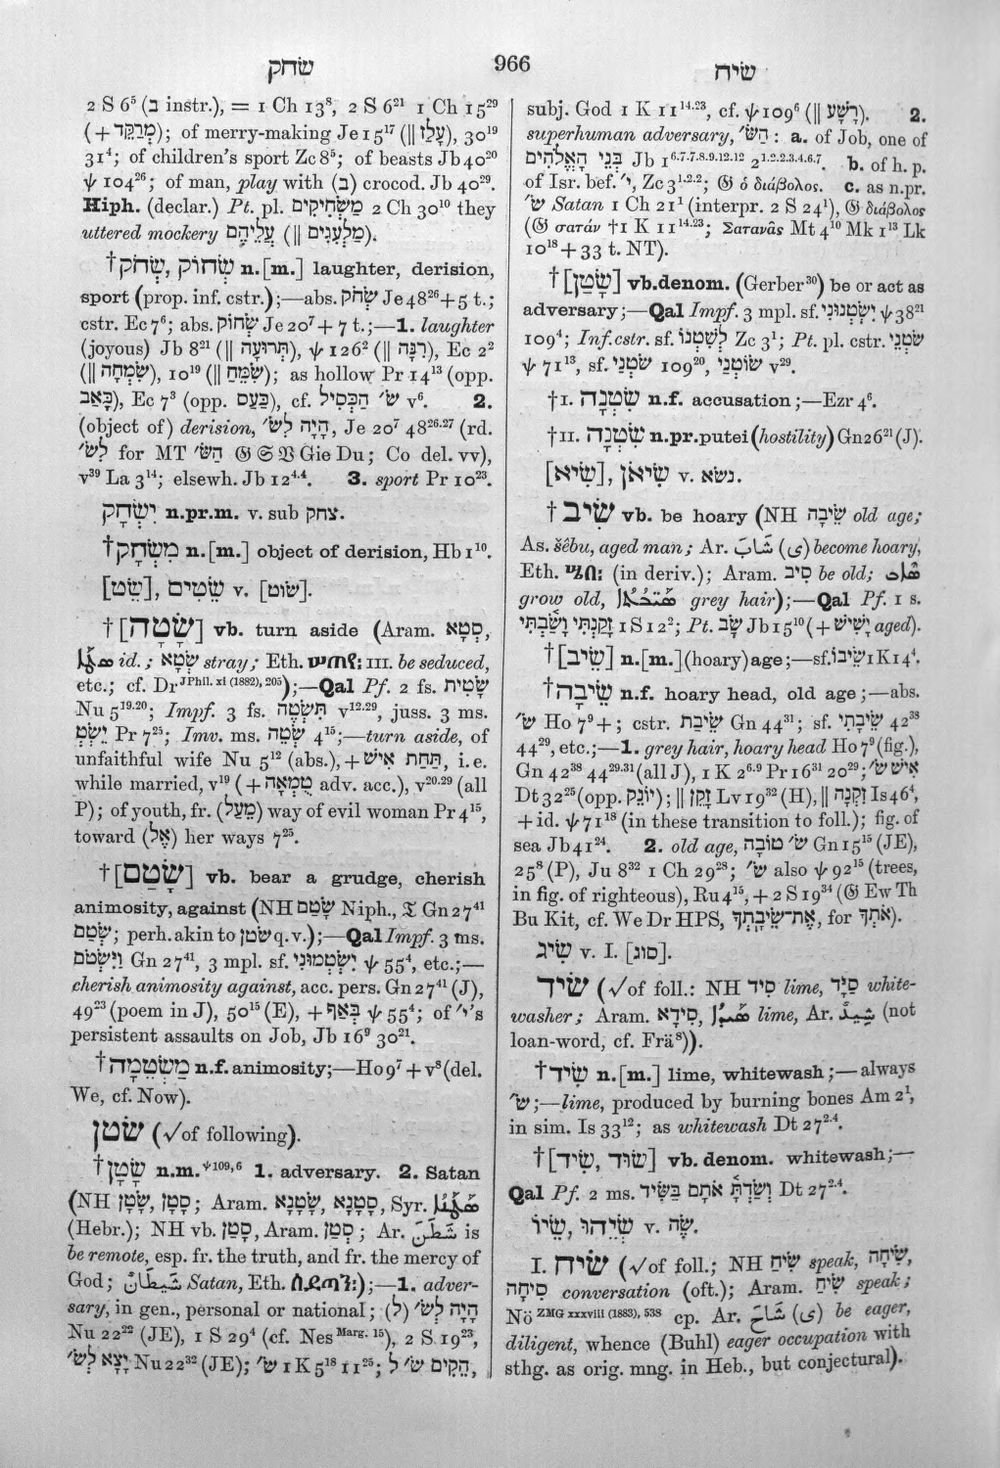 שׂחק
966
שׂיח
2 S 6⁵ (בְּ instr.), = 1 Ch 13⁸, 2 S 6²¹ 1 Ch 15²⁹
(+מְרַקֵּד); of merry-making Je 15¹⁷ (‖ עָלַז), 30¹⁹
31⁴; of children's sport Zc 8⁵; of beasts Jb 40²⁰
ψ 104²⁶; of man, play with (בְּ) crocod. Jb 40²⁹.
Hiph. (declar.) Pt. pl. מַשְׂחִיקִים 2 Ch 30¹⁰ they
uttered mockery עֲלֵיהֶם (‖ מַלְעִגִים).
†שְׂחוֹק, שְׂחֹק n.[m.] laughter, derision,
sport (prop. inf. cstr.);—abs. שְׂחֹק Je 48²⁶+5 t.;
cstr. Ec 7⁶; abs. שְׂחוֹק Je 20⁷+7 t.;—1. laughter
(joyous) Jb 8²¹ (‖ תְּרוּעָה), ψ 126² (‖ רִנָּה), Ec 2²
(‖ שִׂמְחָה), 10¹⁹ (‖ שִׂמַּח); as hollow Pr 14¹³ (opp.
כָּאַב), Ec 7³ (opp. כַּעַס), cf. שׂ׳ הַכְּסִיל v⁶. 2.
(object of) derision, הָיָה לִשׂ׳, Je 20⁷ 48²⁶·²⁷ (rd.
לִשׂ׳ for MT הַשׂ׳ 𝔊 𝔖 𝔙 Gie Du; Co del. vv),
v³⁹ La 3¹⁴; elsewh. Jb 12⁴·⁴. 3. sport Pr 10²³.
יִשְׂחָק n.pr.m. v. sub צחק.
†מִשְׂחָק n.[m.] object of derision, Hb 1¹⁰.
[שֵׂט], שֵׂטִים v. [שׂוּט].
†[שָׂטָה] vb. turn aside (Aram. סְטָא,
ܣܛܐ id.; שְׂטָא stray; Eth. III. be seduced,
etc.; cf. Dr J Phil. xi (1882), 205);—Qal Pf. 2 fs. שָׂטִית
Nu 5¹⁹·²⁰; Impf. 3 fs. תִּשְׂטֶה v¹²·²⁹, juss. 3 ms.
יֵשְׂטְ Pr 7²⁵; Imv. ms. שְׂטֵה 4¹⁵;—turn aside, of
unfaithful wife Nu 5¹² (abs.), +תַּחַת אִישׁ, i.e.
while married, v¹⁹ (+טֻמְאָה adv. acc.), v²⁰·²⁹ (all
P); of youth, fr. (מֵעַל) way of evil woman Pr 4¹⁵,
toward (אֶל) her ways 7²⁵.
†[שָׂטַם] vb. bear a grudge, cherish
animosity, against (NH שָׂטַם Niph., 𝔗 Gn 27⁴¹
שְׂטַם; perh. akin to שׂטן q.v.);—Qal Impf. 3 ms.
וַיִּשְׂטֹם Gn 27⁴¹, 3 mpl. sf. יִשְׂטְמוּנִי ψ 55⁴, etc.;—
cherish animosity against, acc. pers. Gn 27⁴¹ (J),
49²³ (poem in J), 50¹⁵ (E), +בְּאַף ψ 55⁴; of י״'s
persistent assaults on Job, Jb 16⁹ 30²¹.
†מַשְׂטֵמָה n.f. animosity;—Ho 9⁷+v⁸ (del.
We, cf. Now).
שׂטן (√ of following).
†שָׂטָן n.m. ψ 109, 6 1. adversary. 2. Satan
(NH שָׂטָן, סָטָן; Aram. סָטָנָא, שָׂטָנָא, Syr. ܣܛܢܐ
(Hebr.); NH vb. סָטַן, Aram. סְטַן; Ar. شَطَنَ is
be remote, esp. fr. the truth, and fr. the mercy of
God; شَيْطَانٌ Satan, Eth. ሰይጣን፡);—1. adver-
sary, in gen., personal or national; הָיָה לְשׂ׳ (לְ)
Nu 22²² (JE), 1 S 29⁴ (cf. Nes Marg. 15), 2 S 19²³,
יָצָא לְשׂ׳ Nu 22³² (JE); שׂ׳ 1 K 5¹⁸ 11²⁵; הֵקִים שׂ׳ לְ,
subj. God 1 K 11¹⁴·²³, cf. ψ 109⁶ (‖ רָשָׁע). 2.
superhuman adversary, הַשׂ׳: a. of Job, one of
בְּנֵי הָאֱלֹהִים Jb 1⁶·⁷·⁷·⁸·⁹·¹²·¹² 2¹·²·²·³·⁴·⁶·⁷. b. of h. p.
of Isr. bef. י״, Zc 3¹·²·²; 𝔊 ὁ διάβολος. c. as n.pr.
שׂ׳ Satan 1 Ch 21¹ (interpr. 2 S 24¹), 𝔊 διάβολος
(𝔊 σατάν †1 K 11¹⁴·²³; Σατανᾶς Mt 4¹⁰ Mk 1¹³ Lk
10¹⁸+33 t. NT).
†[שָׂטַן] vb.denom. (Gerber³⁰) be or act as
adversary;—Qal Impf. 3 mpl. sf. יִשְׂטְנוּנִי ψ 38²¹
109⁴; Inf.cstr. sf. לְשִׂטְנוֹ Zc 3¹; Pt. pl. cstr. שֹׂטְנֵי
ψ 71¹³, sf. שֹׂטְנַי 109²⁰, שׂוֹטְנַי v²⁹.
†I. שִׂטְנָה n.f. accusation;—Ezr 4⁶.
†II. שִׂטְנָה n.pr.putei (hostility) Gn 26²¹ (J).
[שִׂיא], שִׂיאֹן v. נשׂא.
†שִׂיב vb. be hoary (NH שֵׂיבָה old age;
As. šêbu, aged man; Ar. شَابَ (ى) become hoary,
Eth. (in deriv.); Aram. סִיב be old;
grow old, grey hair);—Qal Pf. 1 s.
זָקַנְתִּי וָשַׂבְתִּי 1 S 12²; Pt. שָׂב Jb 15¹⁰ (+יָשִׁישׁ aged).
†[שֵׂיב] n.[m.] (hoary) age;—sf. שֵׂיבוֹ 1 K 14⁴.
†שֵׂיבָה n.f. hoary head, old age;—abs.
שׂ׳ Ho 7⁹+; cstr. שֵׂיבַת Gn 44³¹; sf. שֵׂיבָתִי 42³⁸
44²⁹, etc.;—1. grey hair, hoary head Ho 7⁹ (fig.),
Gn 42³⁸ 44²⁹·³¹ (all J), 1 K 2⁶·⁹ Pr 16³¹ 20²⁹; אִישׁ שׂ׳
Dt 32²⁵ (opp. יוֹנֵק); ‖ זָקֵן Lv 19³² (H), ‖ זִקְנָה Is 46⁴,
+id. ψ 71¹⁸ (in these transition to foll.); fig. of
sea Jb 41²⁴. 2. old age, שׂ׳ טוֹבָה Gn 15¹⁵ (JE),
25⁸ (P), Ju 8³² 1 Ch 29²⁸; שׂ׳ also ψ 92¹⁵ (trees,
in fig. of righteous), Ru 4¹⁵, +2 S 19³⁴ (𝔊 Ew Th
Bu Kit, cf. We Dr HPS, אֶת־שֵׂיבָתְךָ, for אֹתְךָ).
שִׂיג v. I. [סוּג].
שׂיד (√ of foll.: NH סִיד lime, סַיָּד white-
washer; Aram. סִידָא, ܣܝܕܐ lime, Ar. شِيدٌ (not
loan-word, cf. Frä⁸)).
†שִׂיד n.[m.] lime, whitewash;—always
שׂ״;—lime, produced by burning bones Am 2¹,
in sim. Is 33¹²; as whitewash Dt 27²·⁴.
†[שׂוּד, שִׂיד] vb. denom. whitewash;—
Qal Pf. 2 ms. וְשַׂדְתָּ אֹתָם בַּשִּׂיד Dt 27²·⁴.
שֵׂיהוּ, שֵׂיוֹ v. שֶׂה.
I. שׂיח (√ of foll.; NH שִׂיחַ speak, שִׂיחָה,
סִיחָה conversation (oft.); Aram. שִׂיחַ speak;
Nö ZMG xxxviii (1883), 538 cp. Ar. شَاحَ (ى) be eager,
diligent, whence (Buhl) eager occupation with
sthg. as orig. mng. in Heb., but conjectural).